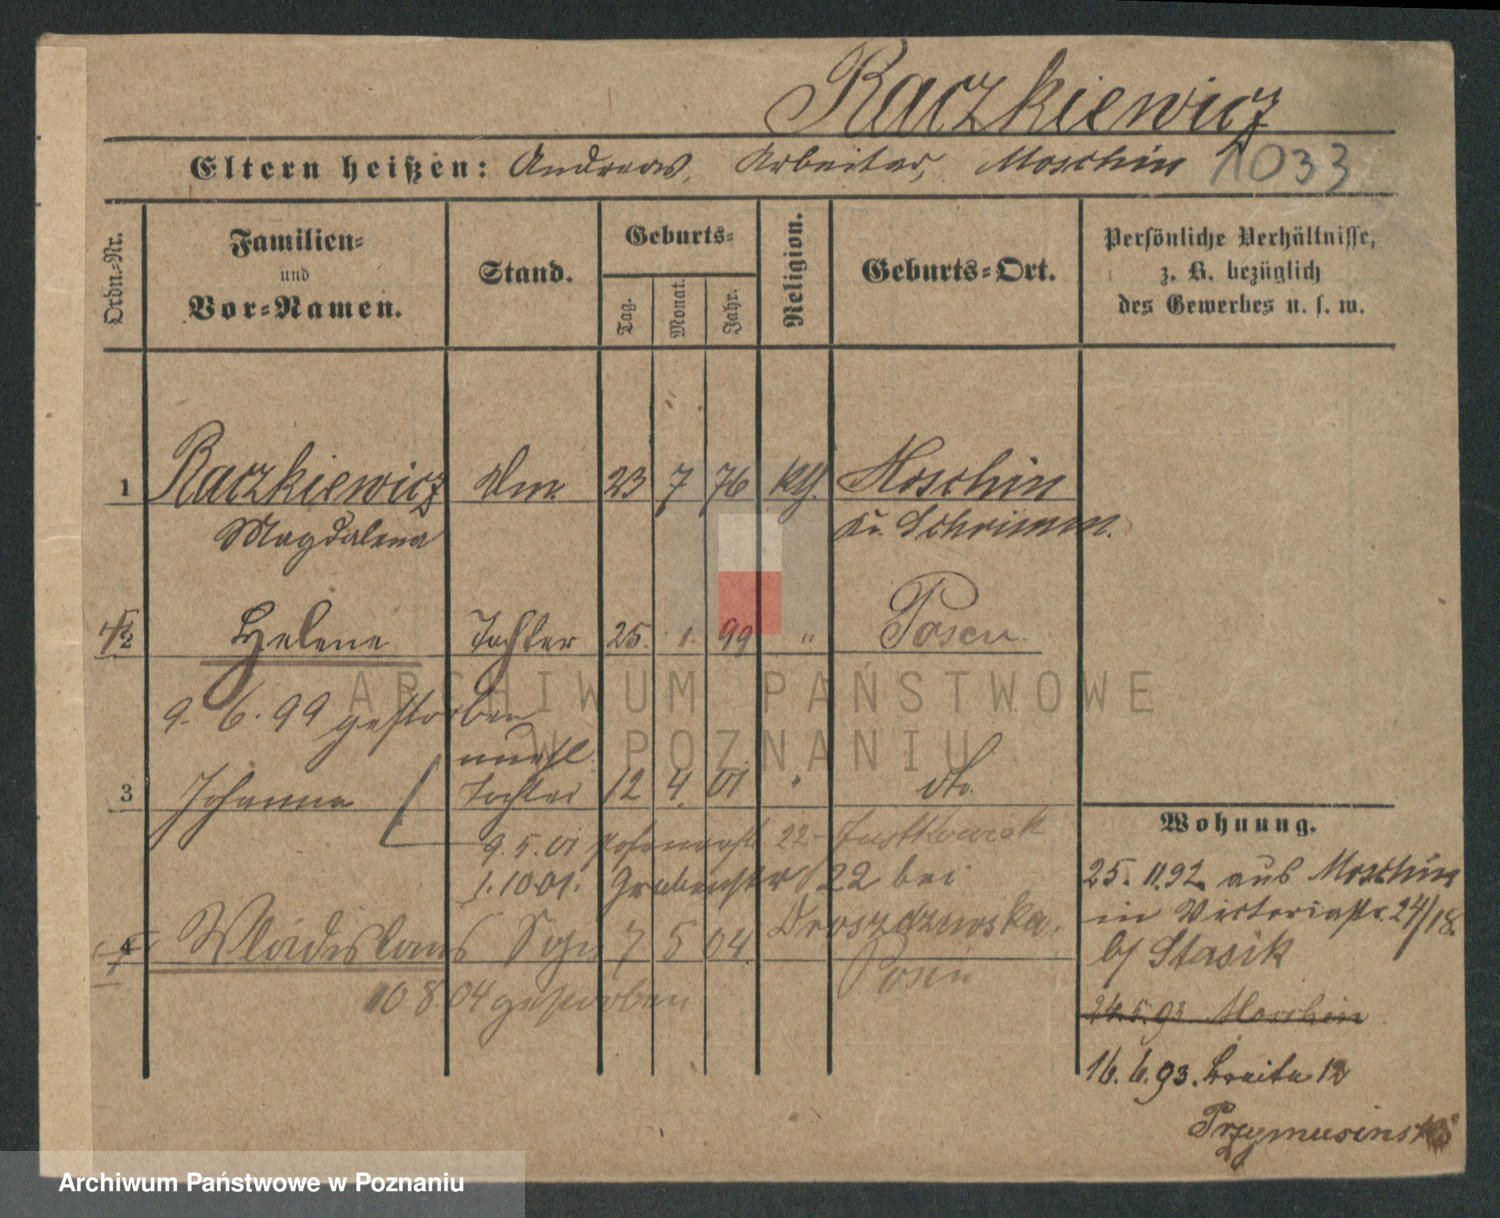 Raczkiewicz
Eltern heißen: Andreas, Arbeiter, Moschin 1033
Ordn.=Nr.
Familien=
und
Vor=Namen.
Stand.
Geburts=
Tag.
Monat.
Jahr.
Religion.
Geburts=Ort.
Persönliche Verhältnisse,
z. B. bezüglich
des Gewerbes u. s. w.
1 Raczkiewicz 23 7 76 kth. Moschin
Magdalena Kr. Schrimm.
2 Helene Tochter 25. 1. 99 " Posen
9. 6. 99 gestorben
unehl.
3 Johanna Tochter 12 4. 01 " dto.
9. 5. 01 22
1. 10 01. Grabenstr 22 bei
Droszdzewska.
4 Wladislaus Sohn 7 5 04 Posen
10 8. 04 gestorben
Wohnung.
25. 11. 92 aus Moschin
in Victoriastr. 24/18.
b/ Stasik
24. 5. 93 Moschin
16. 6. 93. Breite 12
Przymusinski
ARCHIWUM PAŃSTWOWE
W POZNANIU
Archiwum Państwowe w Poznaniu